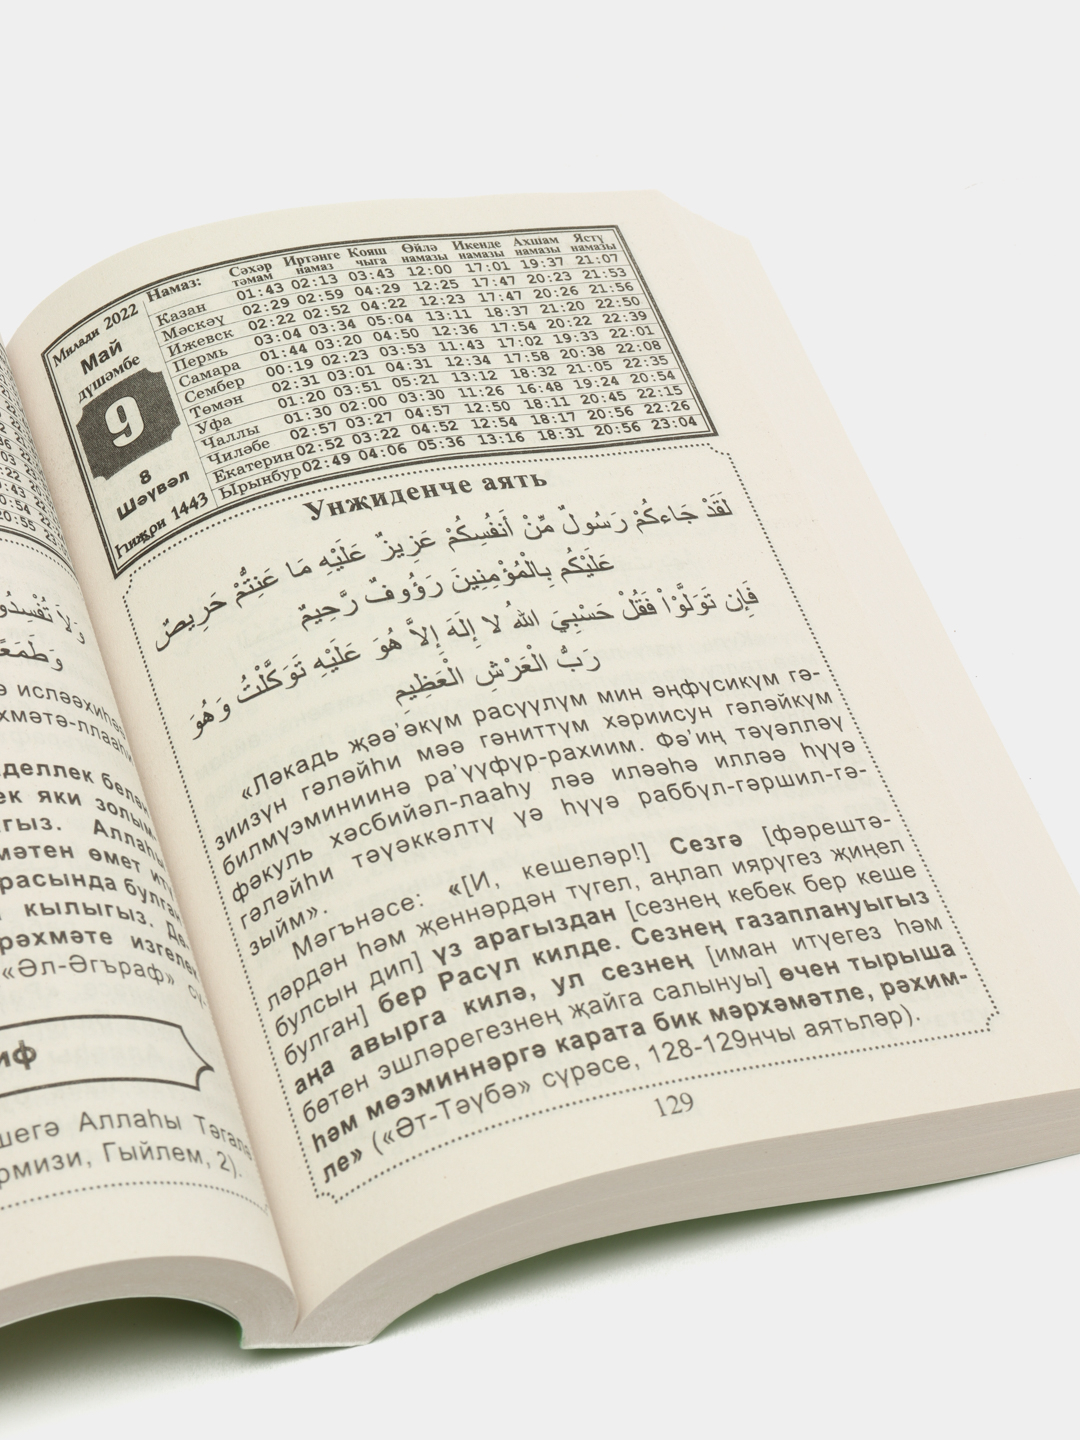 Милади 2022
Май
дүшәмбе
9
8
Шәүвәл
Һиҗри 1443
Намаз: Сәхәр тәмам Иртәнге намаз Кояш чыга Өйлә намазы Икенде намазы Ахшам намазы Ясту намазы
Казан 01:43 02:13 03:43 12:00 17:01 19:37 21:07
Мәскәү 02:29 02:59 04:29 12:25 17:47 20:23 21:53
Ижевск 02:22 02:52 04:22 12:23 17:47 20:26 21:56
Пермь 03:04 03:34 05:04 13:11 18:37 21:20 22:50
Самара 01:44 03:20 04:50 12:36 17:54 20:22 22:39
Сембер 00:19 02:23 03:53 11:43 17:02 19:33 22:01
Төмән 02:31 03:01 04:31 12:34 17:58 20:38 22:08
Уфа 01:20 03:51 05:21 13:12 18:32 21:05 22:35
Чаллы 01:30 02:00 03:30 11:26 16:48 19:24 20:54
Чиләбе 02:57 03:27 04:57 12:50 18:11 20:45 22:15
Екатерин 02:52 03:22 04:52 12:54 18:17 20:56 22:26
Ырынбур 02:49 04:06 05:36 13:16 18:31 20:56 23:04
Унҗиденче аять
لَقَدْ جَاءكُمْ رَسُولٌ مِّنْ أَنفُسِكُمْ عَزِيزٌ عَلَيْهِ مَا عَنِتُّمْ حَرِيصٌ
عَلَيْكُم بِالْمُؤْمِنِينَ رَؤُوفٌ رَّحِيمٌ
فَإِن تَوَلَّوْاْ فَقُلْ حَسْبِيَ اللّهُ لا إِلَهَ إِلاَّ هُوَ عَلَيْهِ تَوَكَّلْتُ وَهُوَ
رَبُّ الْعَرْشِ الْعَظِيمِ
«Ләкадь җәә’әкүм расүүлүм мин әңфүсикүм гә-
зиизүн гәләйһи мәә гәниттүм хәриисун гәләйкүм
билмүэминиинә ра’үүфүр-рахиим. Фә’иң тәүәлләү
фәкуль хәсбийәл-лааһу ләә иләәһә илләә һүүә
гәләйһи тәүәккәлтү үә һүүә раббүл-гәршил-гә-
зыйм».
Мәгънәсе: «[И, кешеләр!] Сезгә [фәрештә-
ләрдән һәм җеннәрдән түгел, аңлап иярүгез җиңел
булсын дип] үз арагыздан [сезнең кебек бер кеше
булган] бер Расүл килде. Сезнең газаплануыгыз
аңа авырга килә, ул сезнең [иман итүегез һәм
бөтен эшләрегезнең җайга салынуы] өчен тырыша
һәм мөэминнәргә карата бик мәрхәмәтле, рәхим-
ле» («Әт-Тәүбә» сүрәсе, 128-129нчы аятьләр).
129
وَلاَ تُفْسِدُو
деллек белән
ек яки золым
гыз. Аллаһ
мәтен өмет ит
расында булган
кылыгыз.
рәхмәте изгелек
«Әл-Әгъраф» сү-
иф
шегә Аллаһы Тәгалә
рмизи, Гыйлем, 2).